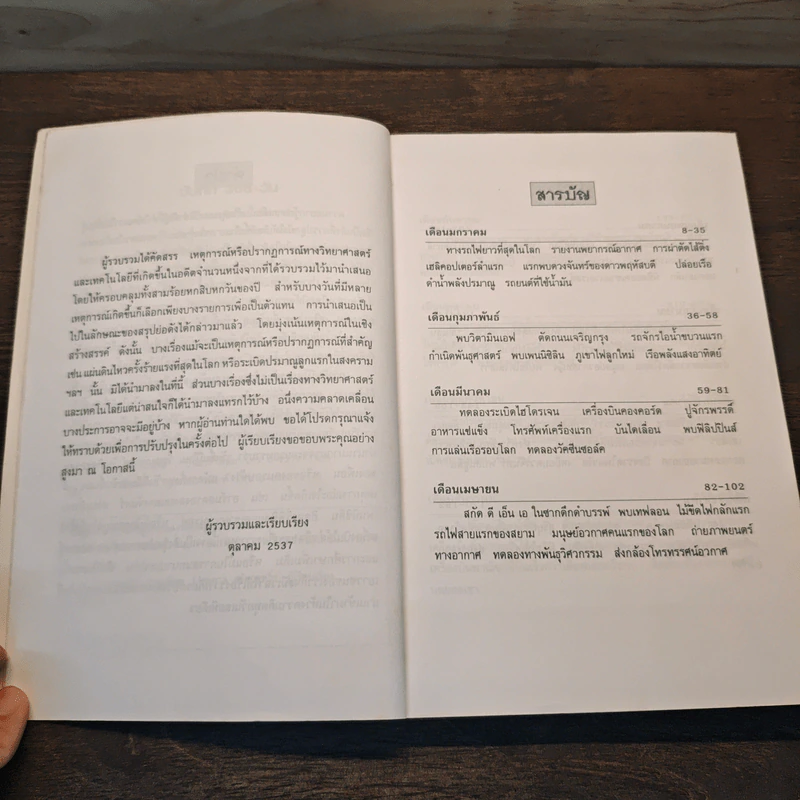 ผู้รวบรวมได้คัดสรร เหตุการณ์หรือปรากฏการณ์ทางวิทยาศาสตร์
และเทคโนโลยีที่เกิดขึ้นในอดีตจำนวนหนึ่งจากที่ได้รวบรวมไว้มานำเสนอ
โดยให้ครอบคลุมทั้งสามร้อยหกสิบหกวันของปี สำหรับบางวันที่มีหลาย
เหตุการณ์เกิดขึ้นก็เลือกเพียงบางรายการเพื่อเป็นตัวแทน การนำเสนอเป็น
ไปในลักษณะของสรุปย่อดังได้กล่าวมาแล้ว โดยมุ่งเน้นเหตุการณ์ในเชิง
สร้างสรรค์ ดังนั้น บางเรื่องแม้จะเป็นเหตุการณ์หรือปรากฏการณ์ที่สำคัญ
เช่น แผ่นดินไหวครั้งร้ายแรงที่สุดในโลก หรือระเบิดปรมาณูลูกแรกในสงคราม
ฯลฯ นั้น มิได้นำมาลงในที่นี้ ส่วนบางเรื่องซึ่งไม่เป็นเรื่องทางวิทยาศาสตร์
และเทคโนโลยีแต่น่าสนใจก็ได้นำมาลงแทรกไว้บ้าง อนึ่งความคลาดเคลื่อน
บางประการอาจจะมีอยู่บ้าง หากผู้อ่านท่านใดได้พบ ขอได้โปรดกรุณาแจ้ง
ให้ทราบด้วยเพื่อการปรับปรุงในครั้งต่อไป ผู้เรียบเรียงขอขอบพระคุณอย่าง
สูงมา ณ โอกาสนี้
ผู้รวบรวมและเรียบเรียง
ตุลาคม 2537
สารบัญ
เดือนมกราคม 8-35
ทางรถไฟยาวที่สุดในโลก รายงานพยากรณ์อากาศ การผ่าตัดไส้ติ่ง
เฮลิคอปเตอร์ลำแรก แรกพบดวงจันทร์ของดาวพฤหัสบดี ปล่อยเรือ
ดำน้ำพลังปรมาณู รถยนต์ที่ใช้น้ำมัน
เดือนกุมภาพันธ์ 36-58
พบวิตามินเอฟ ตัดถนนเจริญกรุง รถจักรไอน้ำขบวนแรก
กำเนิดพันธุศาสตร์ พบเพนนิซิลิน ภูเขาไฟลูกใหม่ เรือพลังแสงอาทิตย์
เดือนมีนาคม 59-81
ทดลองระเบิดไฮโดรเจน เครื่องบินคองคอร์ด ปูจักรพรรดิ์
อาหารแช่แข็ง โทรศัพท์เครื่องแรก บันไดเลื่อน พบฟิลิปปินส์
การแล่นเรือรอบโลก ทดลองวัคซีนซอล์ค
เดือนเมษายน 82-102
สกัด ดี เอ็น เอ ในซากดึกดำบรรพ์ พบเทฟลอน ไม้ขีดไฟกลักแรก
รถไฟสายแรกของสยาม มนุษย์อวกาศคนแรกของโลก ถ่ายภาพยนตร์
ทางอากาศ ทดลองทางพันธุวิศวกรรม ส่งกล้องโทรทรรศน์อวกาศ